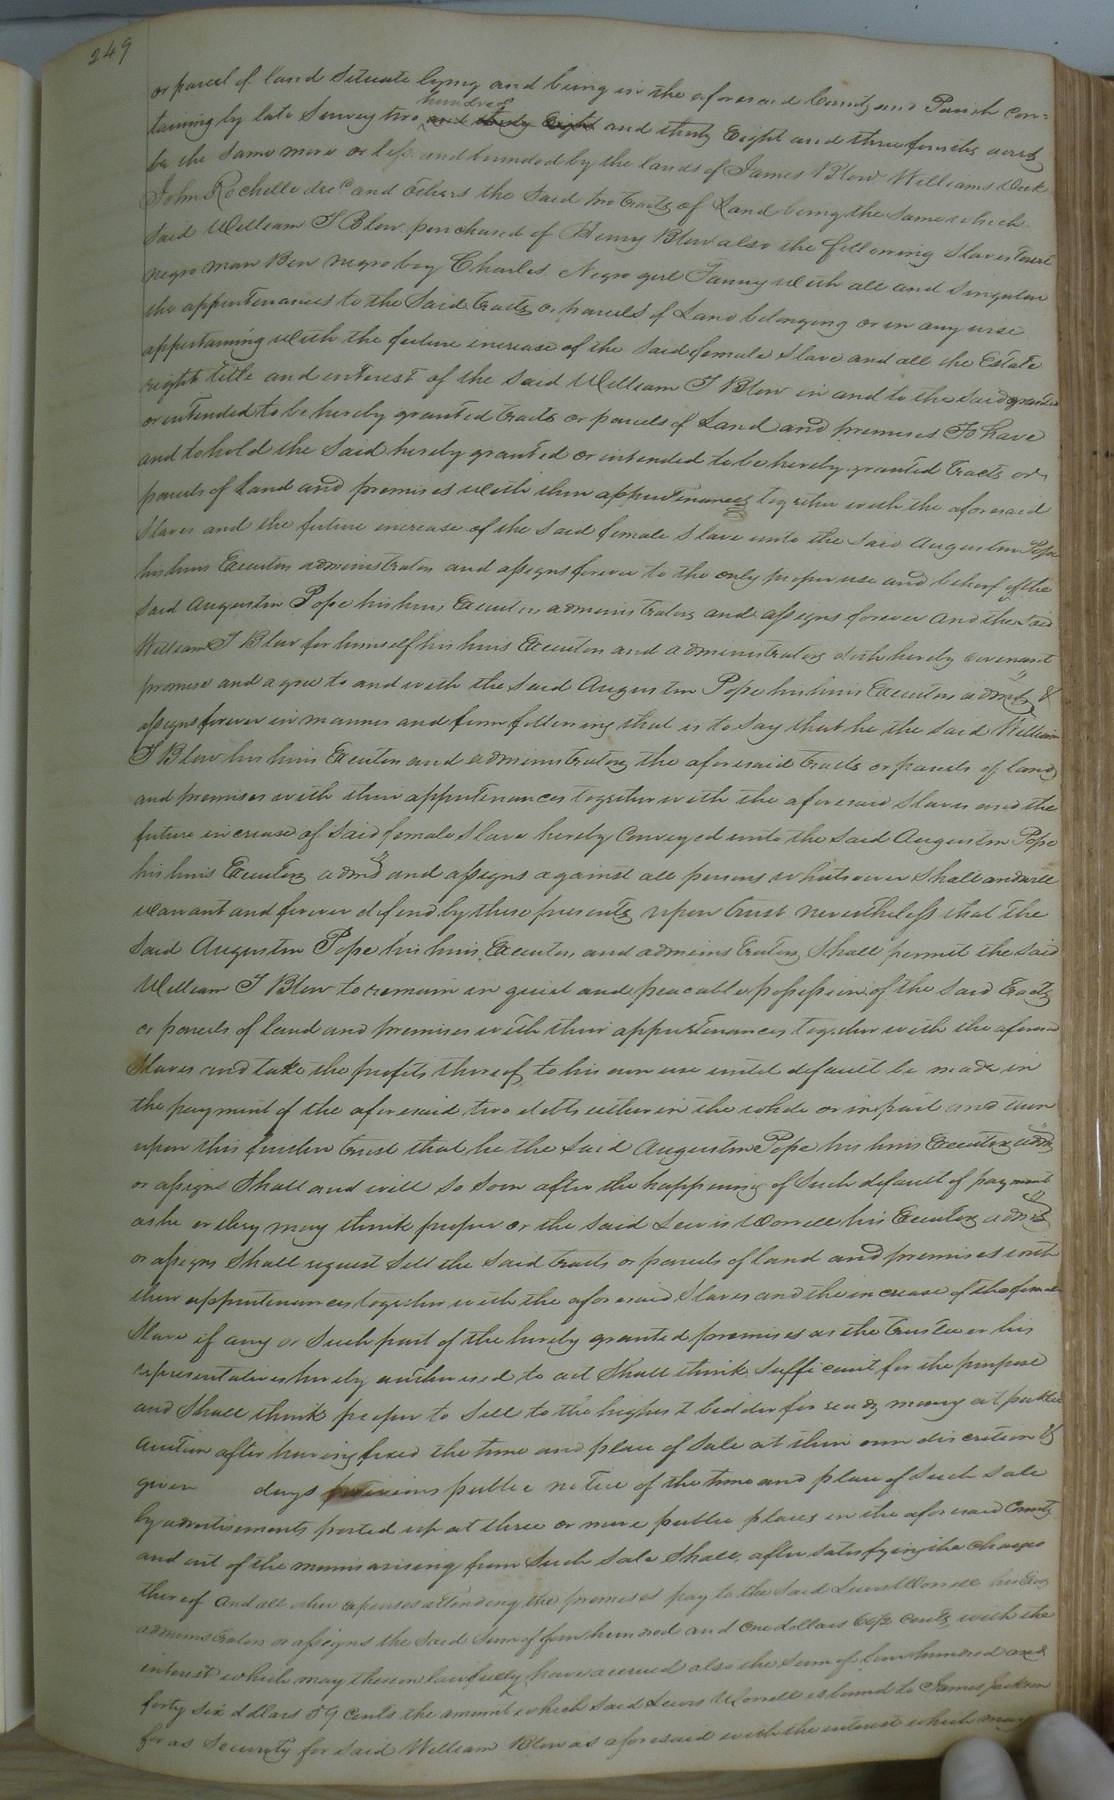 249
or parcel of land Situate lying and being in the aforesaid County and Parish con=
taining by late Survey two hundred and thirty Eight and three fourths acres
be the Same more or less and bounded by the lands of James Blow Williams
John Rochelle decd and others the Said two tracts of Land being the Same which
Said William T Blow purchased of Henry Blow also the following Slaves towit
negro man Ben negro boy Charles Negro girl Fanny with all and Singular
the appurtenances to the Said tracts or parcels of Land belonging or in any wise
appertaining with the future increase of the Said female Slave and all the Estate
right title and interest of the Said William T Blow in and to the Said granted
or intended to be hereby granted tracts or parcels of Land and premises To have
and to hold the Said hereby granted or intended to be hereby granted tracts or
parcels of Land and premises with their appurtenances together with the aforesaid
Slaves and the future increase of the Said female Slave unto the Said Augustin Pope
his heirs Executors administrators and assigns forever to the only proper use and behoof of the
Said Augustin Pope his heirs Executors administrators and assigns forever And the Said
William T Blow for himself his heirs Executors and administrators doth hereby covenant
promise and agree to and with the Said Augustin Pope his heirs Executors admrs &
assigns forever in manner and form following that is to Say that he the Said William
T Blow his heirs Executors and administrators the aforesaid tracts or parcels of land
and premises with their appurtenances together with the aforesaid Slaves and the
future increase of Said female Slave hereby Conveyed unto the Said Augustin Pope
his heirs Executors admrs and assigns against all persons whatsoever Shall and will
warrant and forever defend by these presents upon trust nevertheless that the
Said Augustin Pope his heirs Executors and administrators Shall permit the Said
William T Blow to remain in quiet and peacable possession of the Said Tracts
or parcels of land and premises with their appurtenances together with the aforesaid
Slaves and take the profits thereof to his own use until default be made in
the payment of the aforesaid two debts either in the whole or in part and then
upon this further trust that he the Said Augustin Pope his heirs Executors admrs
or assigns Shall and will So Soon after the happening of Such default of payment
as he or they may think proper or the Said Lewis Worrell his Executors admrs
or assigns Shall request Sell the Said tracts or parcels of land and premises with
their appurtenances together with the aforesaid Slaves and the increase of the female
Slave if any or Such part of the hereby granted premises as the trustee or his
representatives hereby authorised to act Shall think Sufficient for the purpose
and Shall think proper to Sell to the highest bidder for ready money at public
auction after having fixed the time and place of Sale at their own discretion &
given days previous public notice of the time and place of Such Sale
by advertisements posted up at three or more public places in the aforesaid County
and out of the monies arising from Such Sale Shall after satisfying the charges
thereof and all other expenses attending the premises pay to the Said Lewis Worrell his Exrs
administrators or assigns the Said Sum of four hundred and one dollars cents with the
interest which may thereon lawfully have accrued also the Sum of hundred and
forty Six dollars 59 Cents the amount which Said Lewis Worrell is bound to James Jackson
for as Security for Said William Blow as aforesaid with the interest which may